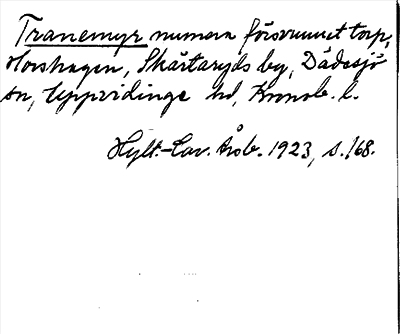 Tranemyr numera försvunnet torp,
Horshagen, Skärtaryds by, Dädesjö
sn, Uppvidinge hd, Kronob. l.
Hylt.-Cav. Årsb. 1923, s. 168.